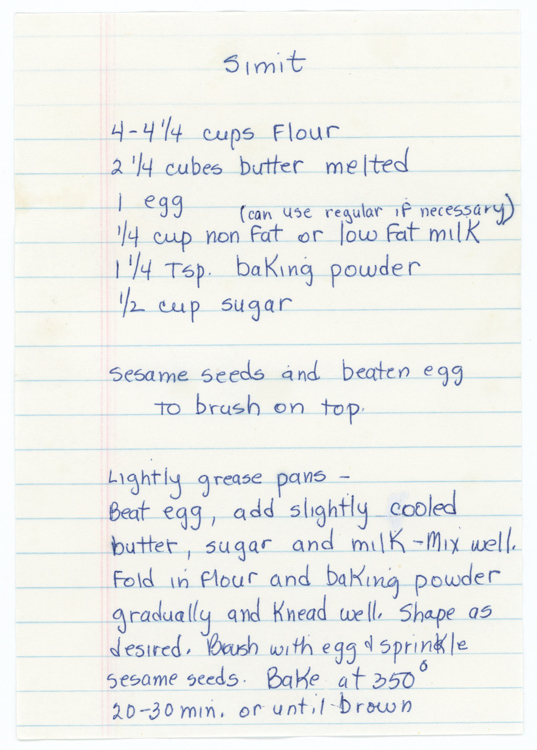 Simit
4-4 1/4 cups Flour
2 1/4 cubes butter melted
1 egg
(can use regular if necessary)
1/4 cup non Fat or low Fat milk
1 1/4 Tsp. baking powder
1/2 cup sugar
sesame seeds and beaten egg
to brush on top.
Lightly grease pans -
Beat egg, add slightly cooled
butter, sugar and milk - Mix well.
Fold in flour and baking powder
gradually and Knead well. Shape as
desired. Brush with egg & sprinkle
sesame seeds. Bake at 350°
20-30 min. or until brown